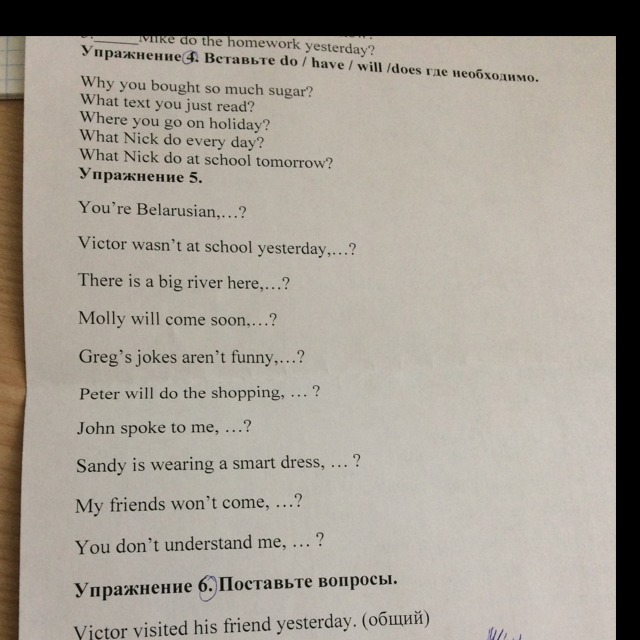 Mike do the homework yesterday?
Упражнение 4. Вставьте do / have / will /does где необходимо.
Why you bought so much sugar?
What text you just read?
Where you go on holiday?
What Nick do every day?
What Nick do at school tomorrow?
Упражнение 5.
You’re Belarusian,…?
Victor wasn’t at school yesterday,…?
There is a big river here,…?
Molly will come soon,…?
Greg’s jokes aren’t funny,…?
Peter will do the shopping, … ?
John spoke to me, …?
Sandy is wearing a smart dress, … ?
My friends won’t come, …?
You don’t understand me, … ?
Упражнение 6. Поставьте вопросы.
Victor visited his friend yesterday. (общий)